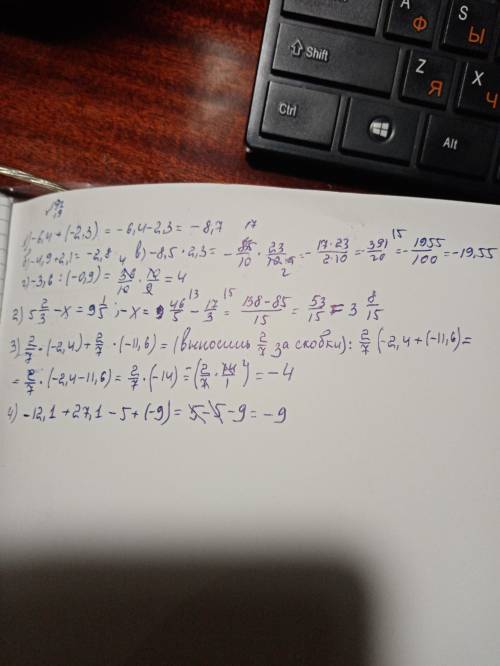 A
Ф
S
Ы
Shift
Z
Я
X
Ч
Ctrl
Alt
-6,4+(-2,3) = -6,4-2,3 = -8,7
б) -4,9+2,1 = -2,8 в) -8,5·2,3 = -85/10 · 23/10 = -17·23/2·10 = 391/20 = -1955/100 = -19,55
г) -3,6:(-0,9) = 36/10 · 10/9 = 4
2) 5 2/3 - x = 9 1/5; -x = 46/5 - 17/3 = 138-85/15 = 53/15 = 3 8/15
3) 2/7·(-2,4)+2/7·(-11,6) = (выносишь 2/7 за скобки): 2/7(-2,4+(-11,6) =
= 2/7·(-2,4-11,6) = 2/7·(-14) = -(2/7 · 14/1) = -4
4) -12,1+27,1-5+(-9) = 5-5-9 = -9